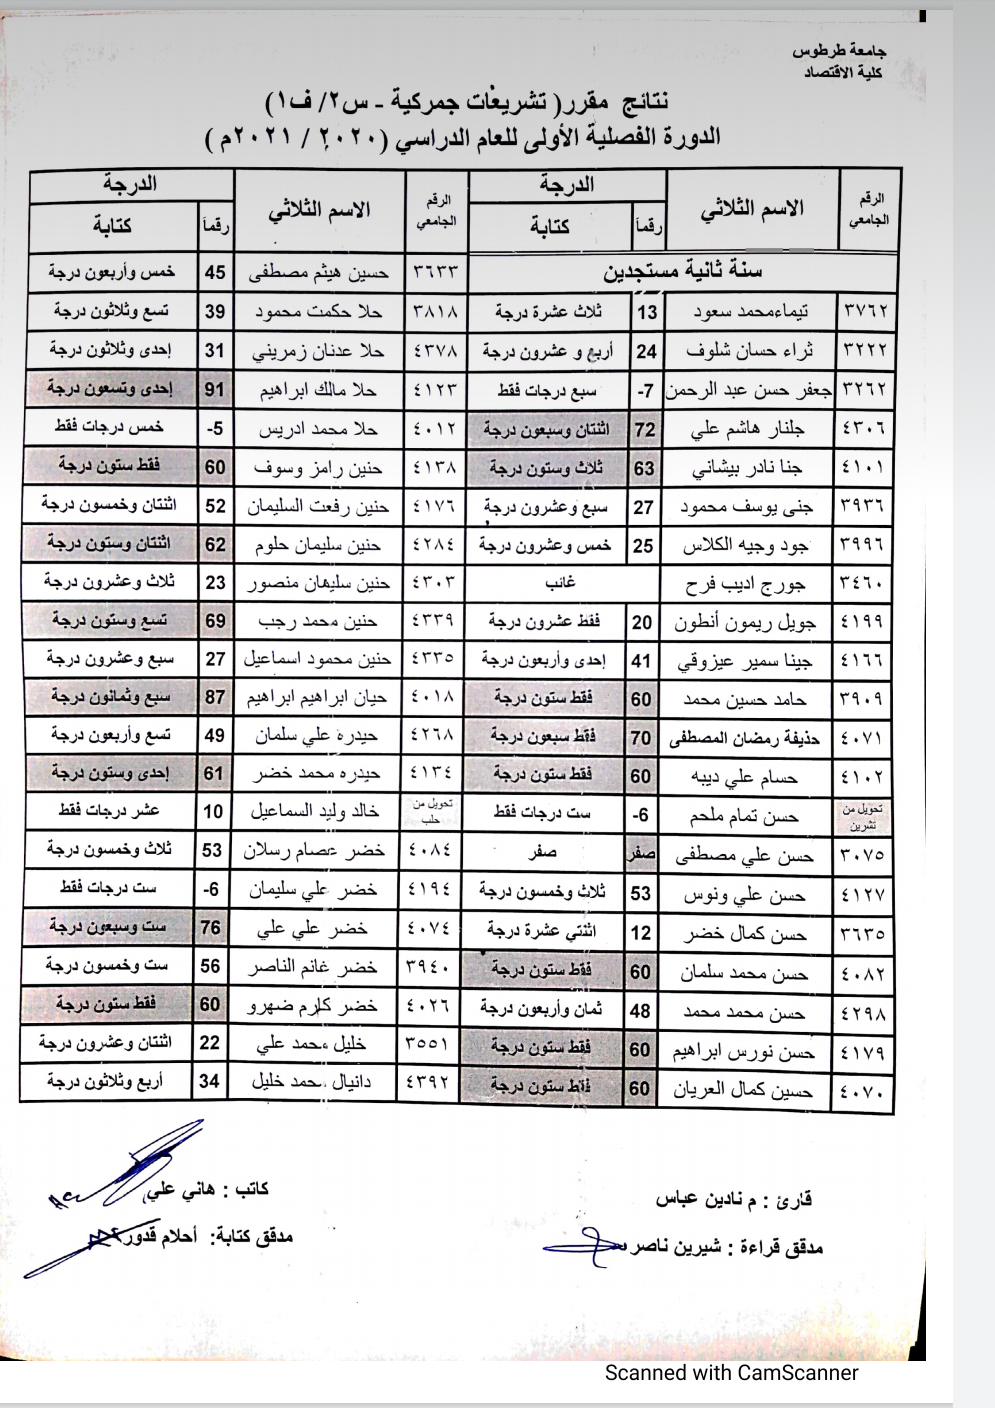 جامعة طرطوس
كلية الاقتصاد
نتائج مقرر( تشريعات جمركية - س٢/ ف١)
الدورة الفصلية الأولى للعام الدراسي (٢٠٢٠ / ٢٠٢١م )
الرقم الجامعي الاسم الثلاثي الدرجة رقماً كتابة
سنة ثانية مستجدين
٣٧٦٢ تيماءمحمد سعود 13 ثلاث عشرة درجة
٣٢٢٢ ثراء حسان شلوف 24 أربع و عشرون درجة
٣٢٦٢ جعفر حسن عبد الرحمن 7- سبع درجات فقط
٤٣٠٦ جلنار هاشم علي 72 اثنتان وسبعون درجة
٤١٠١ جنا نادر بيشاني 63 ثلاث وستون درجة
٣٩٣٦ جنى يوسف محمود 27 سبع وعشرون درجة
٣٩٩٦ جود وجيه الكلاس 25 خمس وعشرون درجة
٣٤٦٠ جورج اديب فرح غائب
٤١٩٩ جويل ريمون أنطون 20 فقط عشرون درجة
٤١٦٦ جينا سمير عيزوقي 41 إحدى وأربعون درجة
٣٩٠٩ حامد حسين محمد 60 فقط ستون درجة
٤٠٧١ حذيفة رمضان المصطفى 70 فقط سبعون درجة
٤١٠٢ حسام علي ديبه 60 فقط ستون درجة
تحويل من تشرين حسن تمام ملحم 6- ست درجات فقط
٣٠٧٥ حسن علي مصطفى صفر صفر
٤١٢٧ حسن علي ونوس 53 ثلاث وخمسون درجة
٣٦٣٥ حسن كمال خضر 12 اثنتي عشرة درجة
٤٠٨٢ حسن محمد سلمان 60 فقط ستون درجة
٤٢٩٨ حسن محمد محمد 48 ثمان وأربعون درجة
٤١٧٩ حسن نورس ابراهيم 60 فقط ستون درجة
٤٠٧٠ حسين كمال العريان 60 فقط ستون درجة
الرقم الجامعي الاسم الثلاثي الدرجة رقماً كتابة
٣٦٣٣ حسين هيثم مصطفى 45 خمس وأربعون درجة
٣٨١٨ حلا حكمت محمود 39 تسع وثلاثون درجة
٤٣٧٨ حلا عدنان زمريني 31 إحدى وثلاثون درجة
٤١٢٣ حلا مالك ابراهيم 91 إحدى وتسعون درجة
٤٠١٢ حلا محمد ادريس 5- خمس درجات فقط
٤١٣٨ حنين رامز وسوف 60 فقط ستون درجة
٤١٧٦ حنين رفعت السليمان 52 اثنتان وخمسون درجة
٤٢٨٤ حنين سليمان حلوم 62 اثنتان وستون درجة
٤٣٠٣ حنين سليمان منصور 23 ثلاث وعشرون درجة
٤٣٣٩ حنين محمد رجب 69 تسع وستون درجة
٤٣٣٥ حنين محمود اسماعيل 27 سبع وعشرون درجة
٤٠١٨ حيان ابراهيم ابراهيم 87 سبع وثمانون درجة
٤٢٦٨ حيدره علي سلمان 49 تسع وأربعون درجة
٤١٣٤ حيدره محمد خضر 61 إحدى وستون درجة
تحويل من حلب خالد وليد السماعيل 10 عشر درجات فقط
٤٠٨٤ خضر عصام رسلان 53 ثلاث وخمسون درجة
٤١٩٤ خضر علي سليمان 6- ست درجات فقط
٤٠٧٤ خضر علي علي 76 ست وسبعون درجة
٣٩٤٠ خضر غانم الناصر 56 ست وخمسون درجة
٤٠٢٦ خضر كارم ضهرو 60 فقط ستون درجة
٣٥٥١ خليل محمد علي 22 اثنتان وعشرون درجة
٤٣٩٢ دانيال محمد خليل 34 أربع وثلاثون درجة
قارئ : م نادين عباس
كاتب : هاني علي
مدقق قراءة : شيرين ناصر
مدقق كتابة: أحلام قدور
Scanned with CamScanner